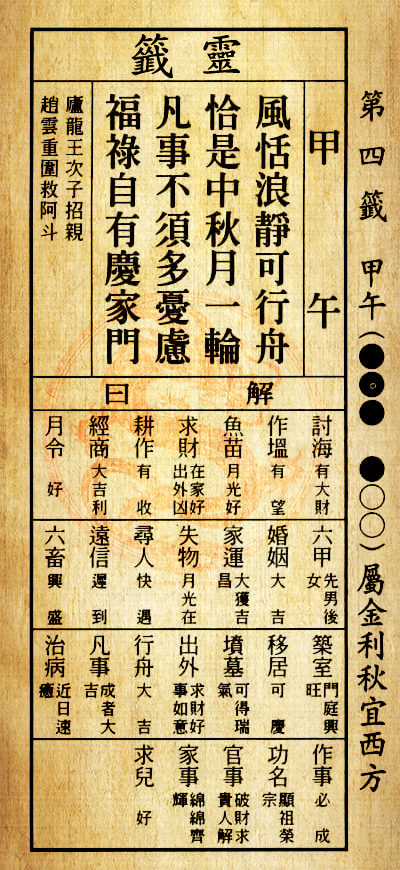 第四籤 甲午(●●● ●○○)屬金利秋宜西方
靈籤
甲午
風恬浪靜可行舟
恰是中秋月一輪
凡事不須多憂慮
福祿自有慶家門
廬龍王次子招親
趙雲重圍救阿斗
解曰
討海 有大財
作塭 有望
魚苗 月光好
求財 在家好出外凶
耕作 有收
經商 大吉利
月令 好
六甲 先男後女
婚姻 大吉
家運 大獲吉昌
失物 月光在
尋人 快遇
遠信 遲到
六畜 興盛
築室 門庭興旺
移居 可慶
墳墓 可得瑞氣
出外 求財好事如意
行舟 大吉
凡事 成者大吉
治病 近日速癒
作事 必成
功名 顯祖榮宗
官事 破財求貴人解
家事 綿綿齊輝
求兒 好